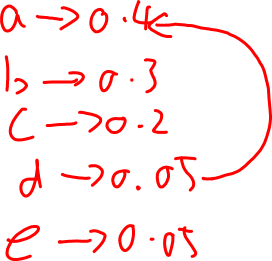 a → 0.4
b → 0.3
c → 0.2
d → 0.05
e → 0.05